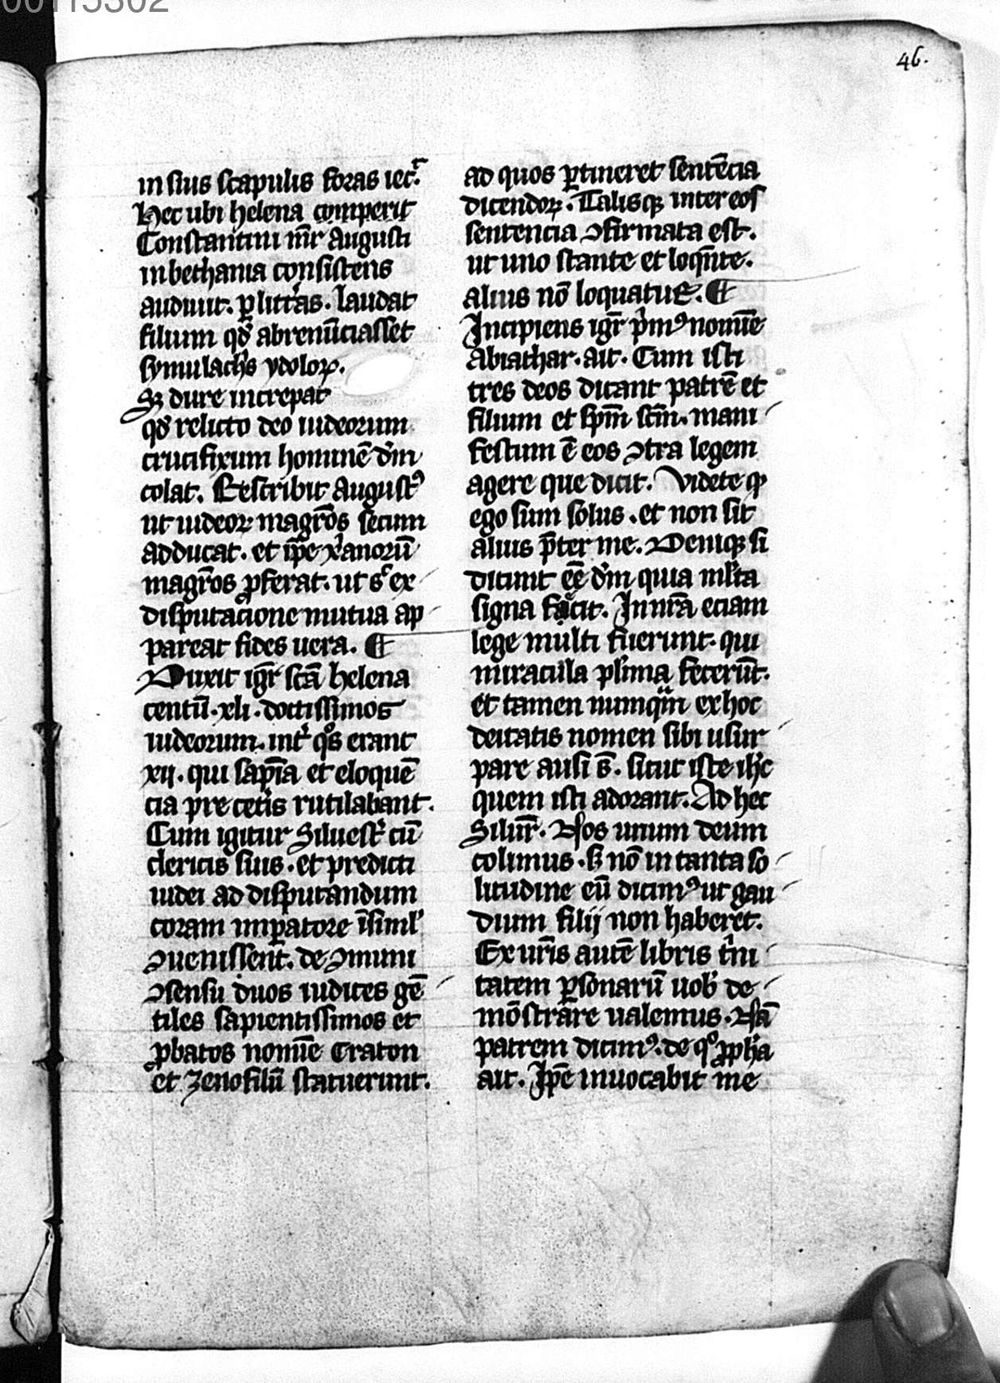 00115302
46.
in suis scapulis foras iec̄.
Hec ubi helena comperit
Constantini mr̄ augusti
in bethania consistens
audiuit. ꝑ litt̄as. laudat
filium qd̓ abrenūciasset
symulachͥs ydoloꝝ.
Sꝫ dure increpat
qd̓ relicto deo iudeorum
crucifixum hominē dn̄m
colat. Rescribit augustꝰ
ut iudeoꝝ magr̄os secum
adducat. et ip̄e xͥanorū
magr̄os ꝓferat. ut sͥ ex
disputacione mutua ap
pareat fides uera. ¶
Duxit igr̄ scā helena
centū. xli. doctissimos
iudeorum. intͥ qͦs erant
xij. qui sapīa et eloquē
cia pre cetͥs rutilabant.
Cum igitur Siluestͥ cū
clericis suis. et predicti
iudei ad disputandum
coram imꝑatore īsiml̓
ꝯuenissent. de ꝯmuni
ꝯsensu duos iudices gē
tiles sapientissimos et
ꝓbatos nomīe Craton
et Zenofilū statuerunt.
ad quos ꝑtineret sentēcia
dicendoꝝ. Talisqꝫ inter eos
sentencia ꝯfirmata est.
ut uno stante et loqn̄te.
alius nō loquatur. ¶
Incipiens igr̄ pͥmꝰ nomīe
Abiathar. ait. Cum isti
tres deos dicant patrē et
filium et sp̄m sc̄m. mani
festum ē eos ꝯtra legem
agere que dicit. Videte qꝫ
ego sum solus. et non sit
alius p̄ter me. Deniqꝫ si
dicunt eē dn̄m quia ml̓ta
signa facit. In nr̄a eciam
lege multi fuerunt. qui
miracula plͥma fecerūt.
et tamen numqͣm ex hoc
deitatis nomen sibi usur
pare ausi s̄. sicut iste ih̄c
quem isti adorant. Ad hec
Siluͥ. Nos unum deum
colimus. sꝫ nō in tanta so
litudine eū dicimꝰ ut gau
dium filij non haberet.
Ex ur̄is autē libris tͥni
tatem ꝑsonarū uob̓ de
mōstrare ualemus. Nā
patrem dicimꝰ. de qͦ ꝓph̄a
ait. Ip̄e inuocabit me